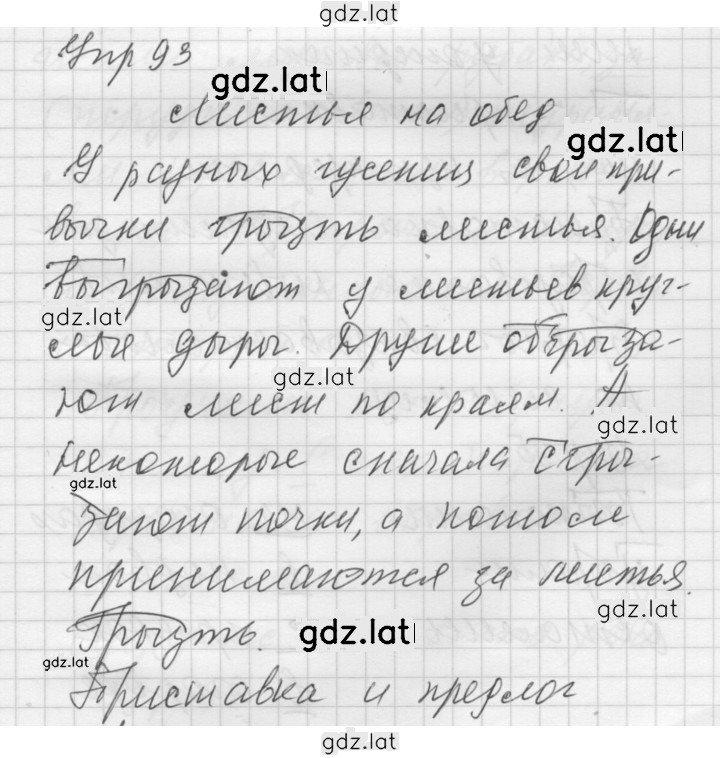 gdz.lat
Упр 93
gdz.lat
Листья на обед
gdz.lat
У разных гусениц свои при-
вычки грызть листья. Одни
выгрызают у листьев круг-
gdz.lat
лые дыры. Другие обгрыза-
gdz.lat
ют лист по краям. А
gdz.lat
некоторые сначала сгры-
gdz.lat
зают почки, а потом
принимаются за листья.
gdz.lat
Грызть.
gdz.lat
gdz.lat
Приставка и предлог
gdz.lat